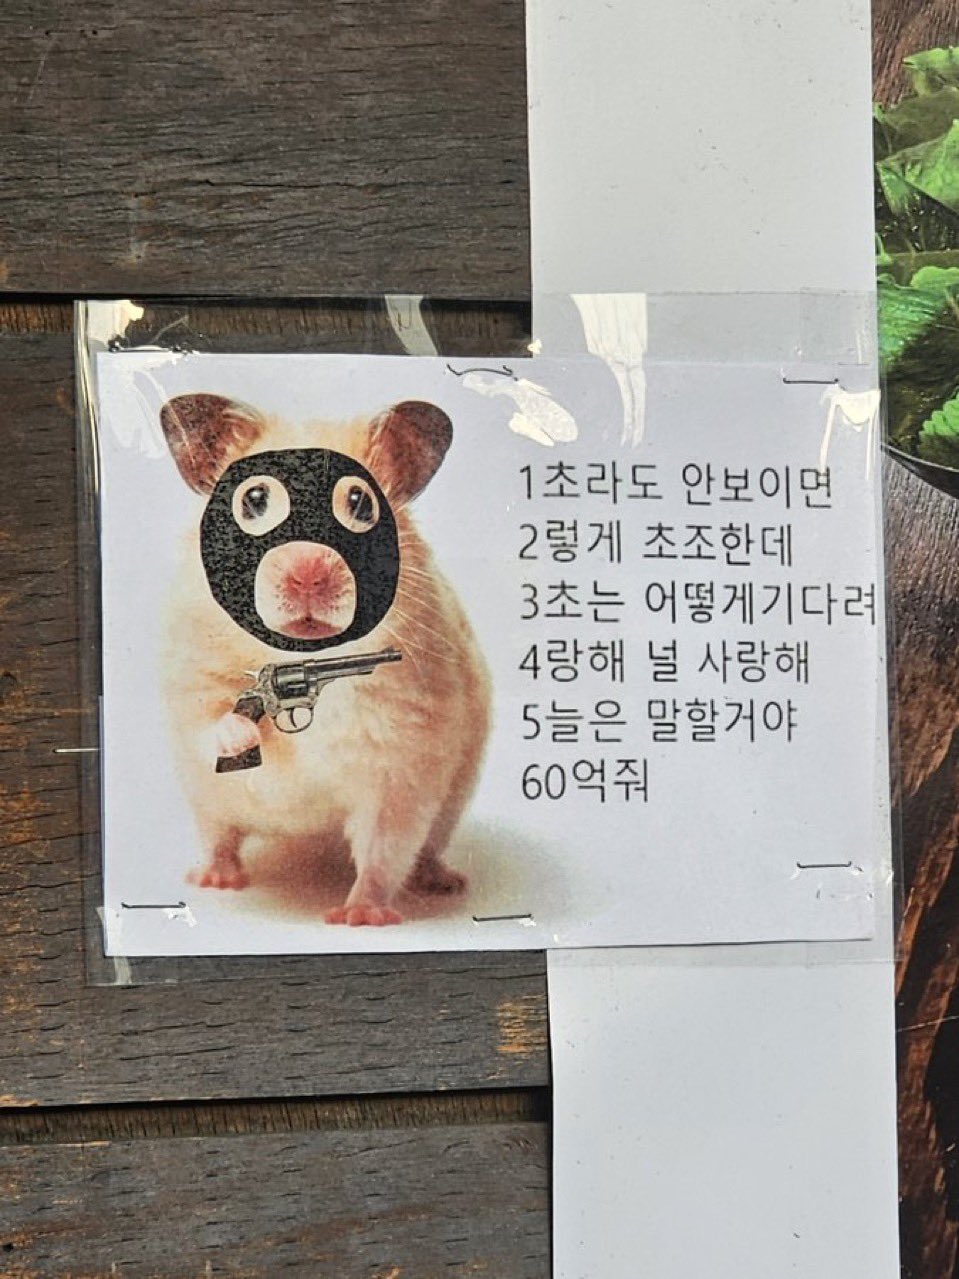 1초라도 안보이면
2렇게 초조한데
3초는 어떻게기다려
4랑해 널 사랑해
5늘은 말할거야
60억줘